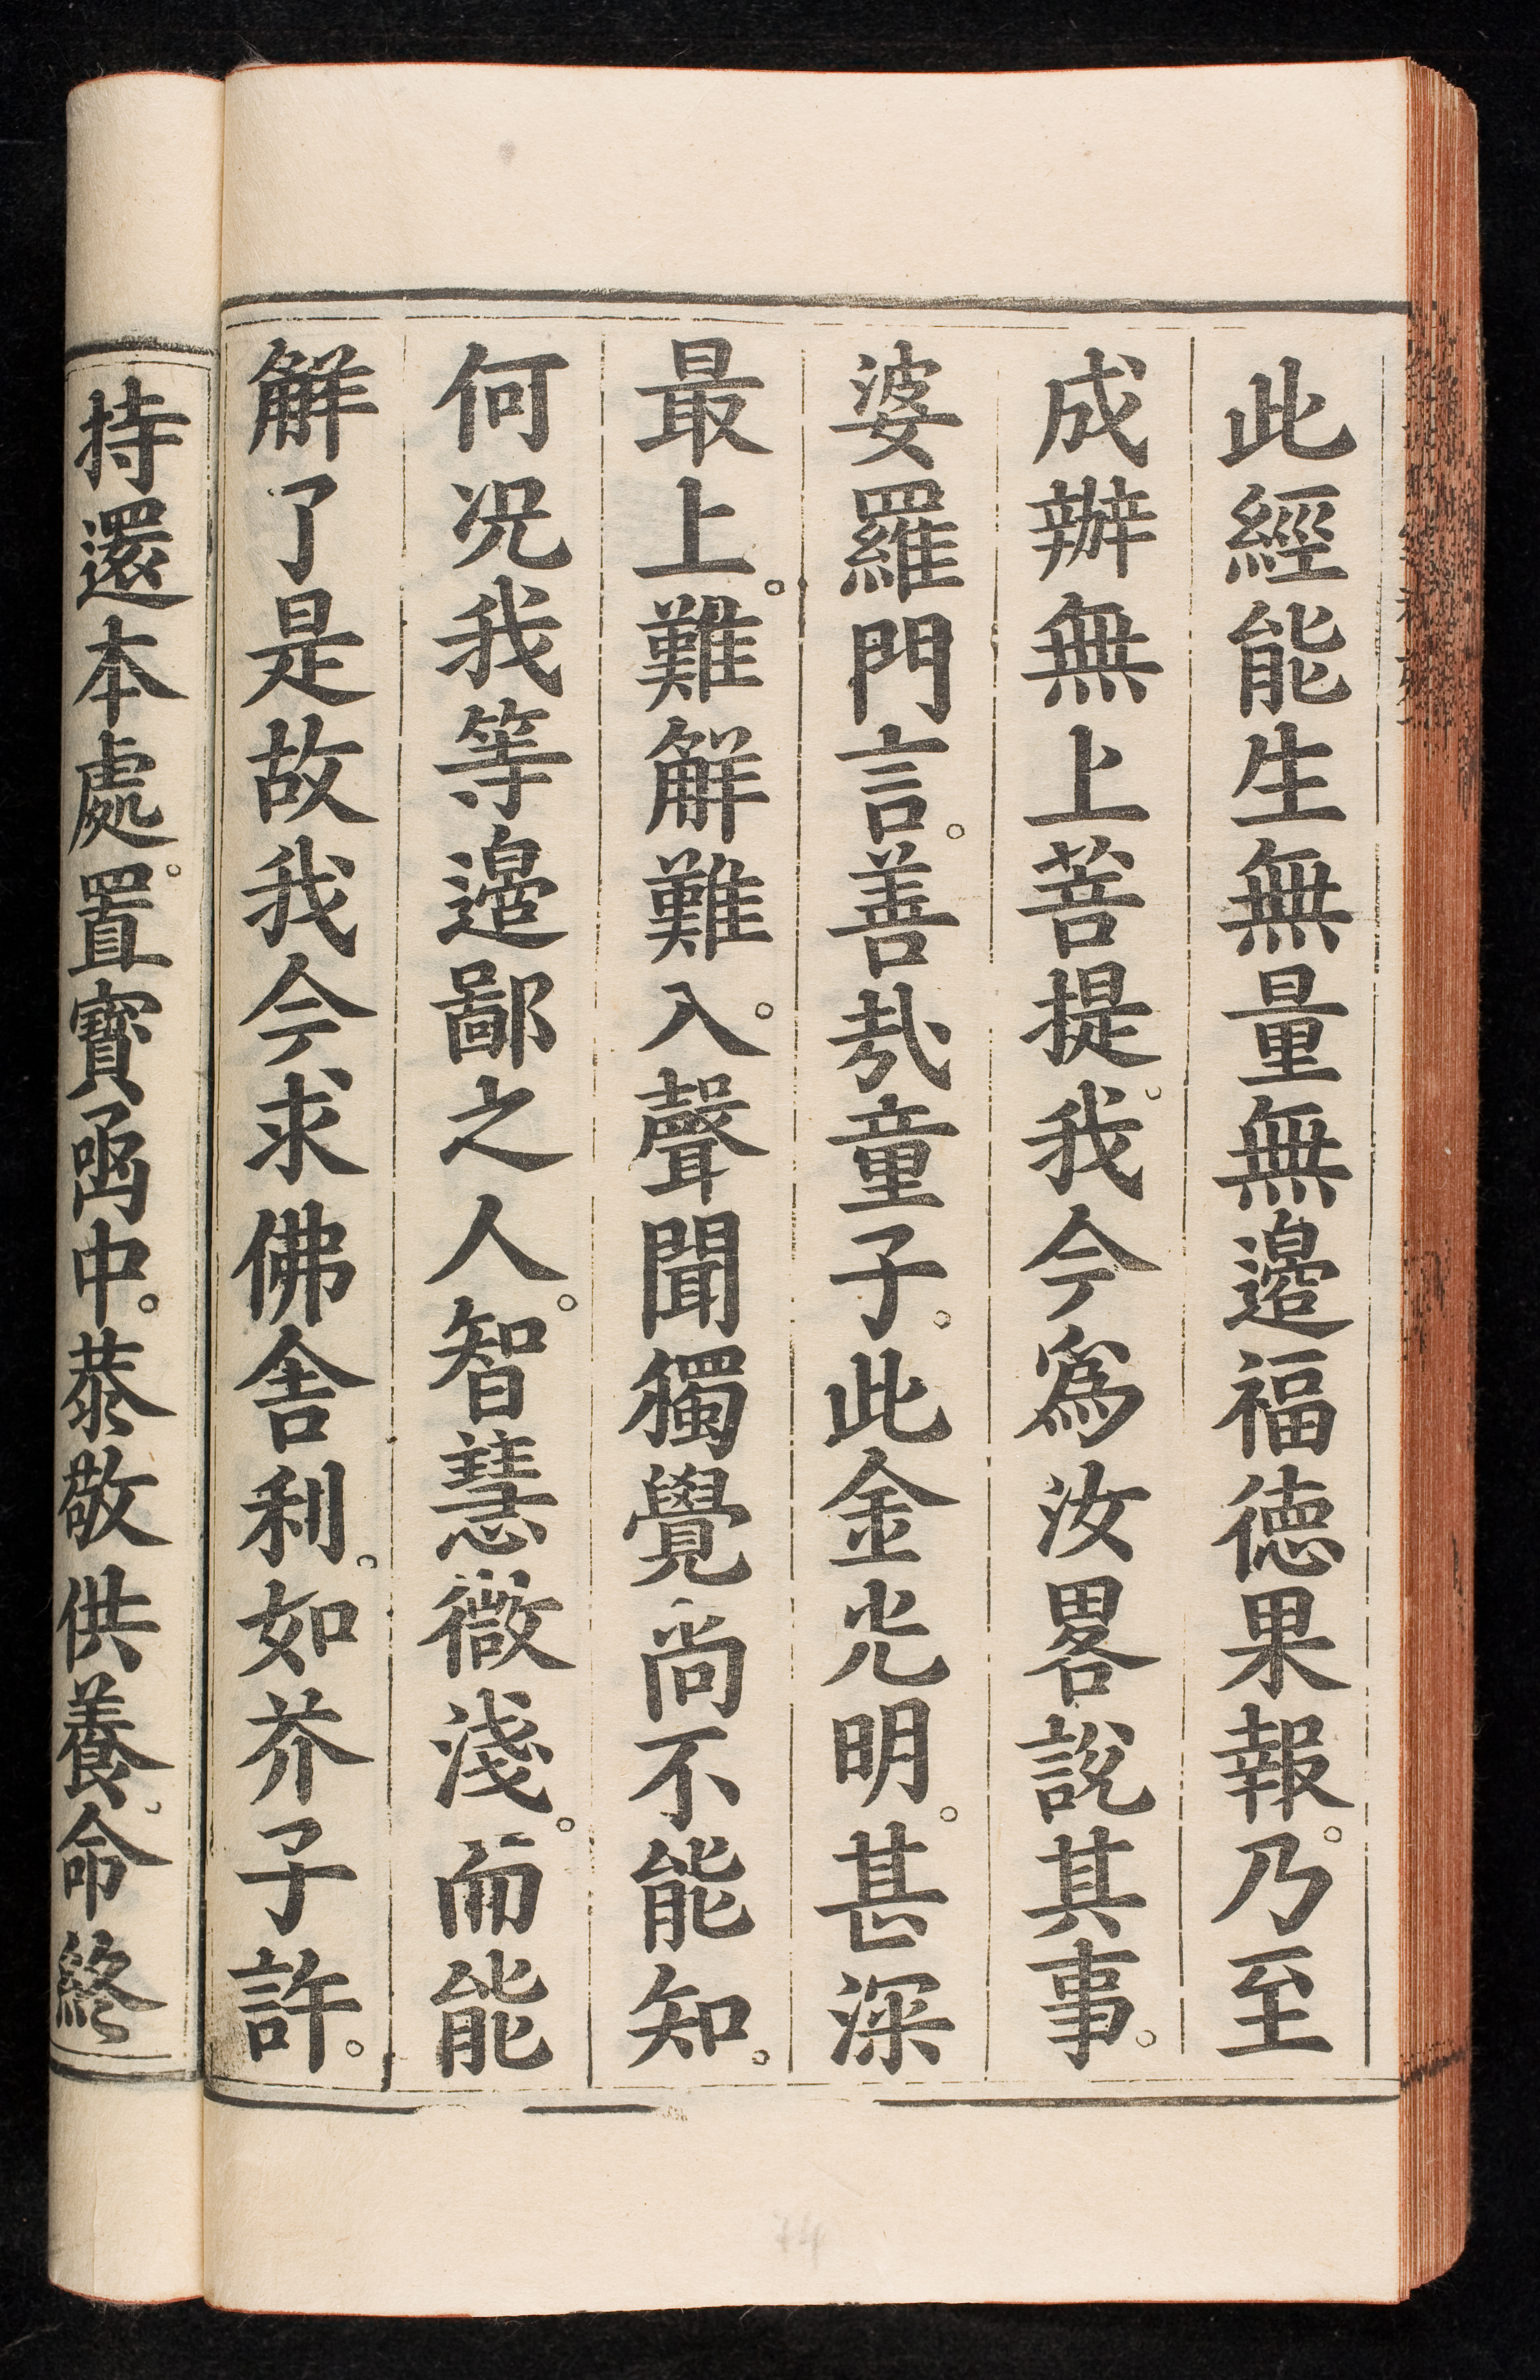 此經能生無量無邊福德果報。乃至
成辦無上菩提。我今為汝畧說其事。
婆羅門言。善哉童子。此金光明。甚深
最上。難解難入。聲聞獨覺尚不能知。
何况我等邉鄙之人。智慧微淺。而能
解了是故我今求佛舍利。如芥子許。
持還本處。置寶函中。恭敬供養。命終
74